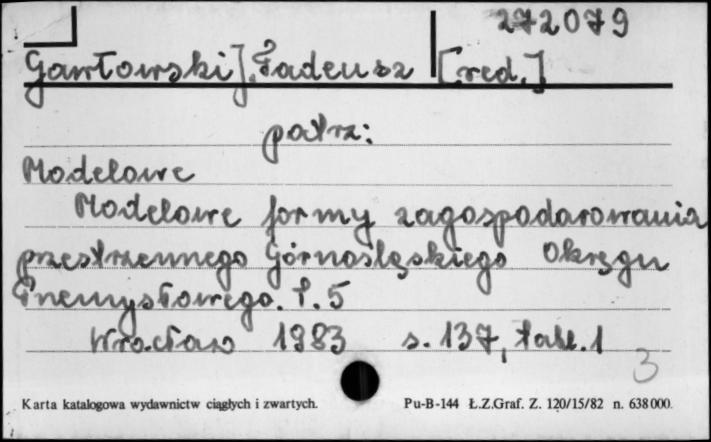 272079
Gawłowski] Tadeusz [red.]
patrz:
Modelowe
Modelowe formy zagospodarowania
przestrzennego Górnośląskiego Okręgu
Przemysłowego. T. 5
Wrocław 1983 s. 137, tabl. 1
3
Karta katalogowa wydawnictw ciągłych i zwartych. Pu-B-144 Ł.Z.Graf. Z. 120/15/82 n. 638 000.